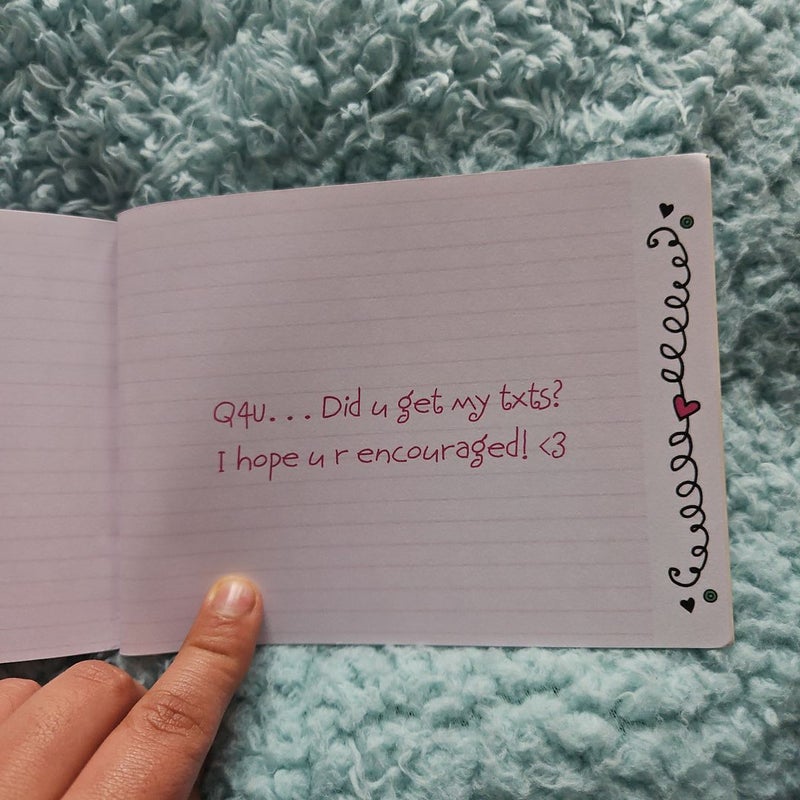 Q4U... Did u get my txts?
I hope u r encouraged! <3